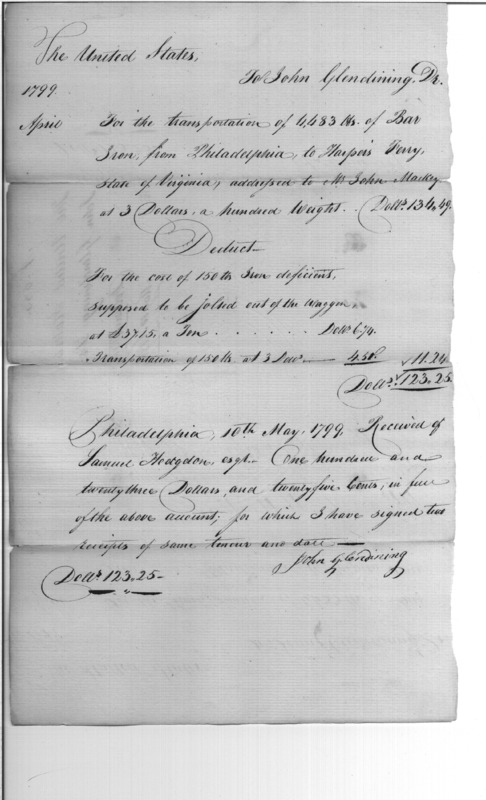 The United States,
To John Glendining, Dr.
1799
April For the transportation of 4,483 lbs. of Bar
Iron, from Philadelphia, to Harper's Ferry,
State of Virginia, addressed to Mr. John Mackey
at 3 Dollars, a hundred Weight. . Dolls. 134.49.
Deduct
For the cost of 150 lbs Iron deficient,
supposed to be jolted out of the Waggon,
at £37.15, a Ton . . . . . . Dolls. 6.74.
Transportation of 150 lbs. at 3 Dolls. 4.50. 11.24
Dolls. 123.25
Philadelphia, 10th May, 1799, Received of
Samuel Hodgdon, esqr. One hundred and
twenty three Dollars, and twenty five Cents, in full
of the above account; for which I have signed two
receipts of same tenour and date
John Glendining
Dolls. 123.25